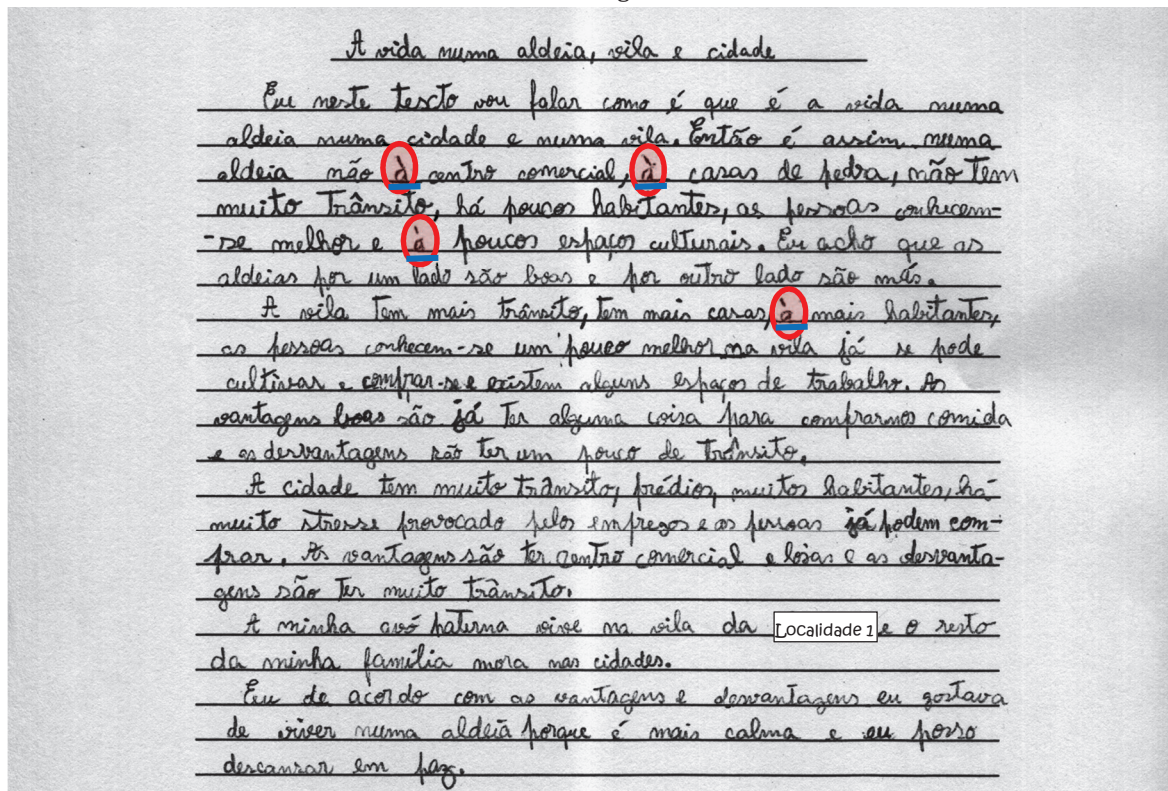 A vida numa aldeia, vila e cidade
Eu neste texcto vou falar como é que é a vida numa
aldeia numa cidade e numa vila. Então é assim numa
aldeia não à centro comercial, à casas de pedra, não tem
muito trânsito, há poucos habitantes, as pessoas conhecem-
-se melhor e à poucos espaços culturais. Eu acho que as
aldeias por um lado são boas e por outro lado são más.
A vila tem mais trânsito, tem mais casas, à mais habitantes,
as pessoas conhecem-se um pouco melhor na vila já se pode
cultivar e comprar-se e existem alguns espaços de trabalho. As
vantagens boas são já ter alguma coisa para comprarmos comida
e as desvantagens são ter um pouco de trânsito.
A cidade tem muito trânsito, prédios, muitos habitantes, há
muito stresse provocado pelos empregos e as pessoas já podem com-
prar. As vantagens são ter centro comercial e lojas e as desvanta-
gens são ter muito trânsito.
A minha avó paterna vive na vila da Localidade 1 e o resto
da minha família mora nas cidades.
Eu de acordo com as vantagens e desvantagens eu gostava
de viver numa aldeia porque é mais calma e eu posso
descansar em paz.